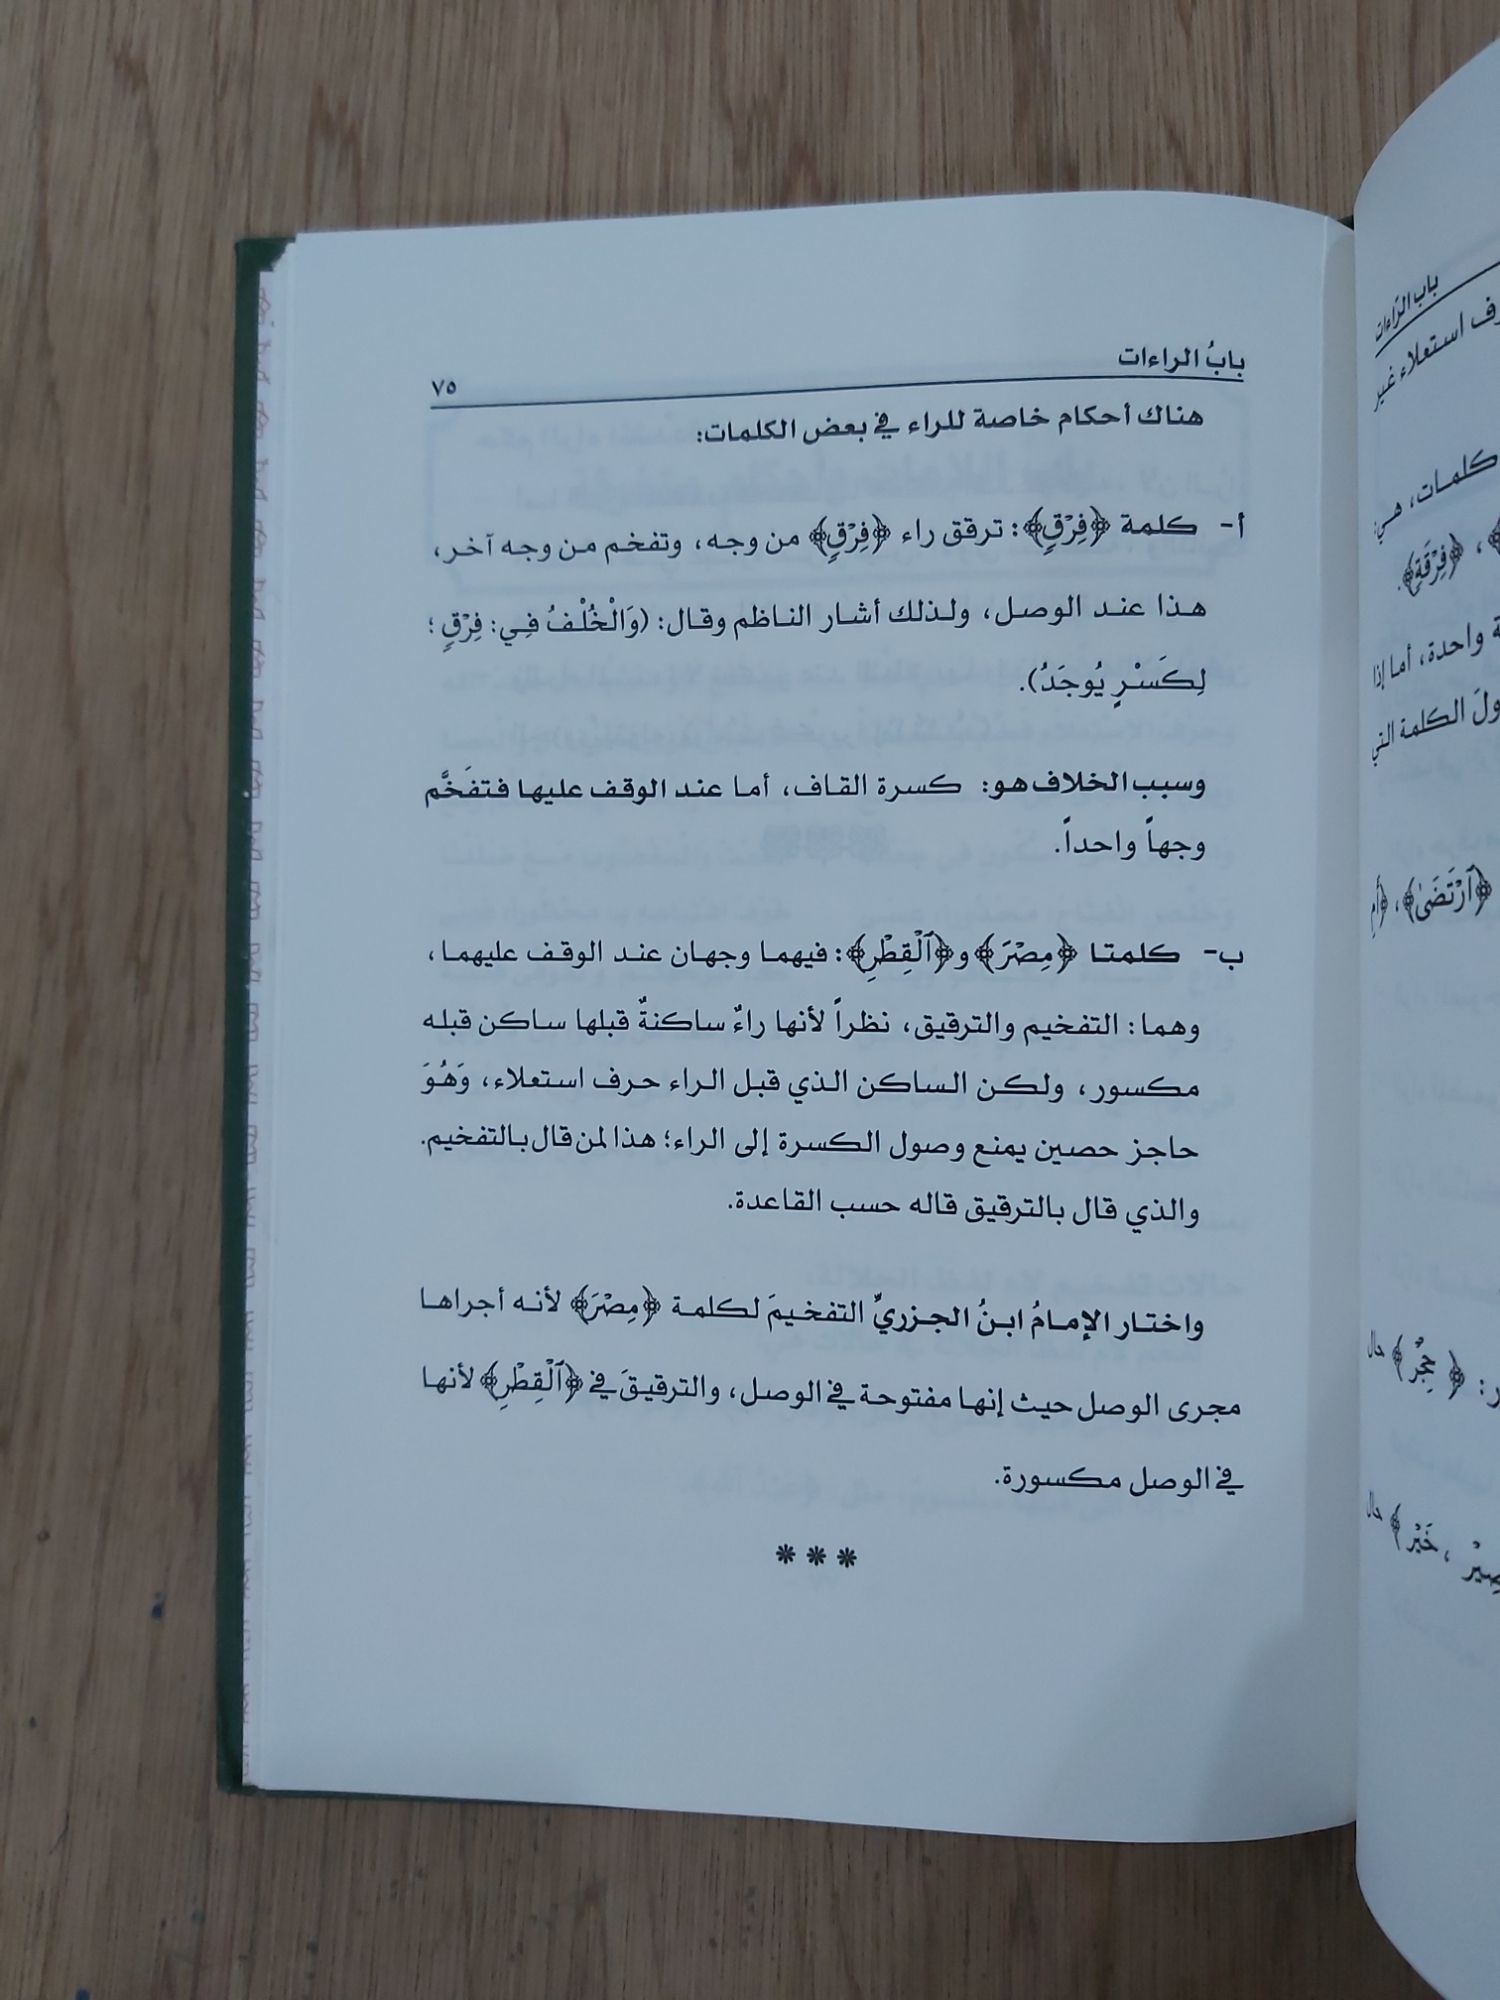 بابُ الراءات
٧٥
هناك أحكام خاصة للراء في بعض الكلمات:
أ- كلمة ﴿فِرْقٍ﴾: ترقق راء ﴿فِرْقٍ﴾ من وجه، وتفخم من وجه آخر،
هذا عند الوصل، ولذلك أشار الناظم وقال: (وَالْخُلْفُ فِي: فِرْقٍ ؛
لِكَسْرٍ يُوجَدُ).
وسبب الخلاف هو: كسرة القاف، أما عند الوقف عليها فتفَخَّم
وجهاً واحداً.
ب- كلمتا ﴿مِصْرَ﴾ و﴿ٱلْقِطْرِ﴾: فيهما وجهان عند الوقف عليهما،
وهما: التفخيم والترقيق، نظراً لأنها راءٌ ساكنةٌ قبلها ساكن قبله
مكسور، ولكن الساكن الذي قبل الراء حرف استعلاء، وَهُوَ
حاجز حصين يمنع وصول الكسرة إلى الراء؛ هذا لمن قال بالتفخيم.
والذي قال بالترقيق قاله حسب القاعدة.
واختار الإمامُ ابنُ الجزريِّ التفخيمَ لكلمة ﴿مِصْرَ﴾ لأنه أجراها
مجرى الوصل حيث إنها مفتوحة في الوصل، والترقيقَ في ﴿ٱلْقِطْرِ﴾ لأنها
في الوصل مكسورة.
***
باب الرّاءات
استعلاء غير
كلمات، هي:
﴿فِرْقَةٍ﴾.
واحدة، أما إذا
الكلمة التي
﴿ٱرْتَضَىٰ﴾،
﴿حِجْرٌ﴾ حال
، خَبْر﴾ حال